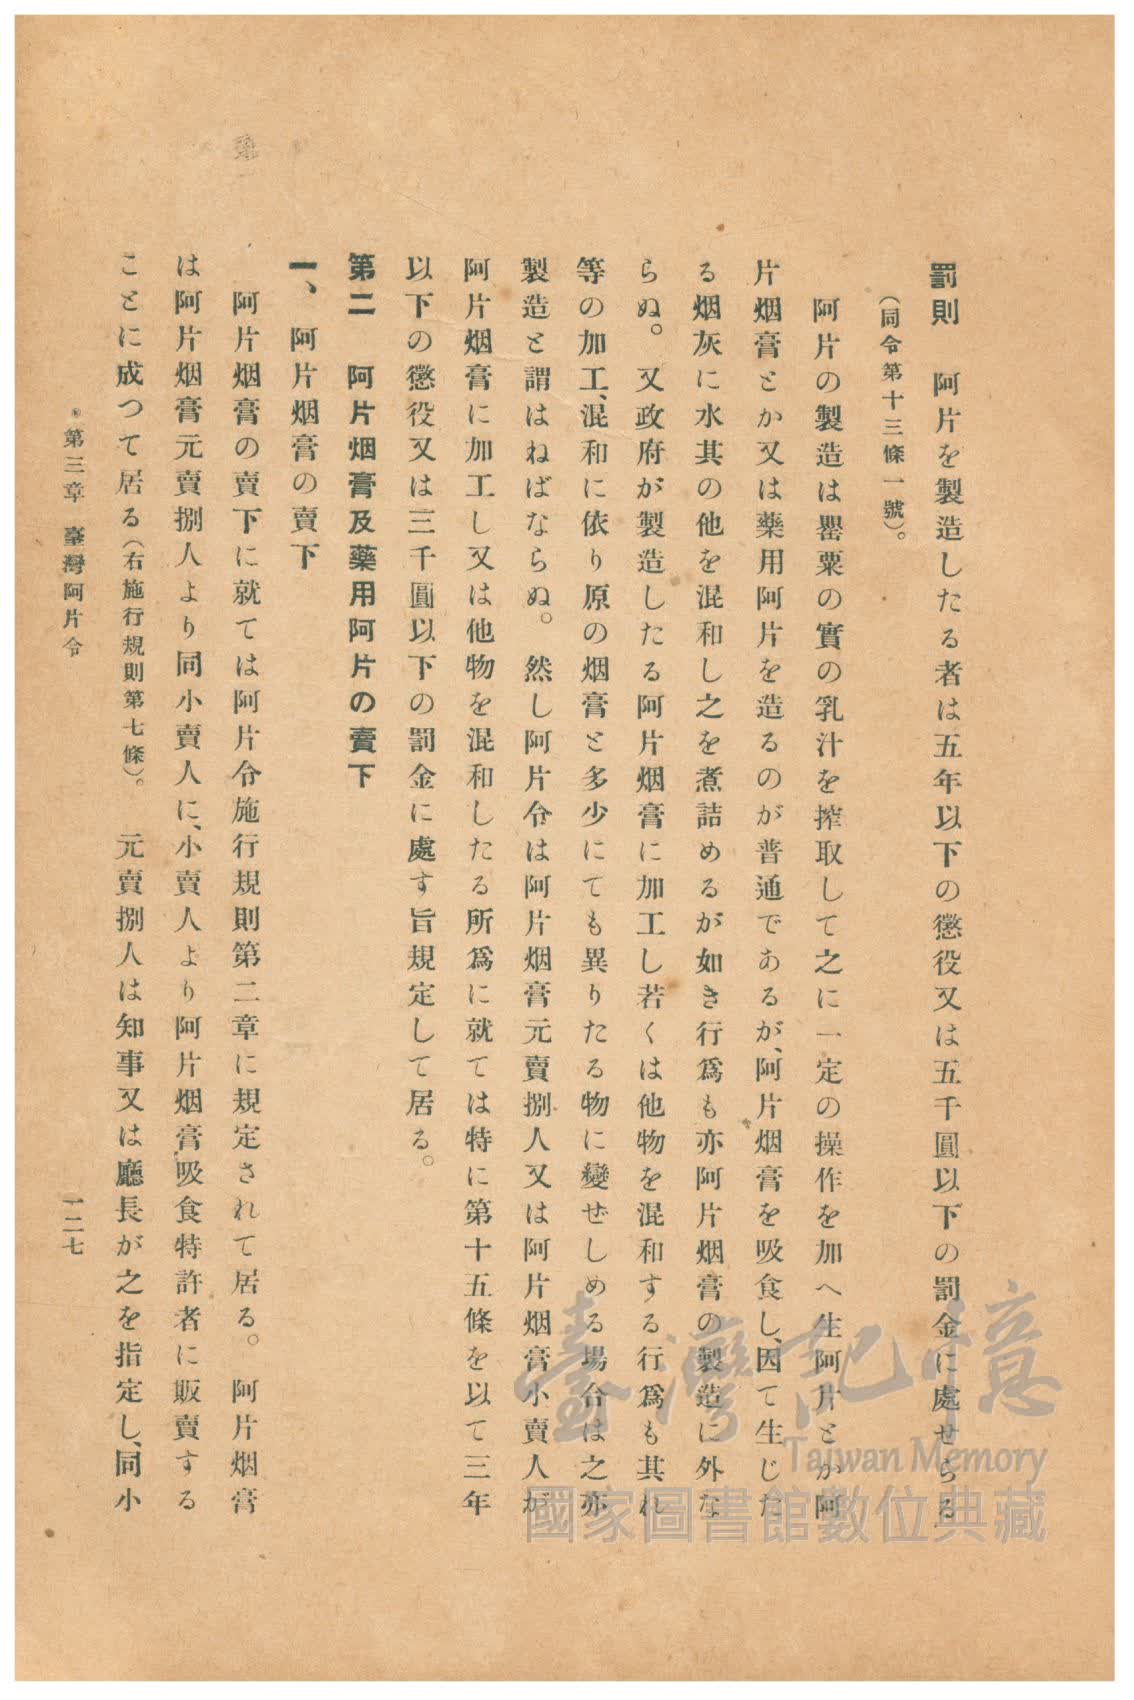 罰則　阿片を製造したる者は五年以下の懲役又は五千圓以下の罰金に處せらる
（同令第十三條一號）。
阿片の製造は罌粟の實の乳汁を搾取して之に一定の操作を加へ生阿片とか阿
片烟膏とか又は藥用阿片を造るのが普通であるが、阿片烟膏を吸食し、因て生じた
る烟灰に水其の他を混和し之を煮詰めるが如き行爲も亦阿片烟膏の製造に外な
らぬ。又政府が製造したる阿片烟膏に加工し若くは他物を混和する行爲も其れ
等の加工、混和に依り原の烟膏と多少にても異りたる物に變ぜしめる場合は之亦
製造と謂はねばならぬ。然し阿片令は阿片烟膏元賣捌人又は阿片烟膏小賣人が
阿片烟膏に加工し又は他物を混和したる所爲に就ては特に第十五條を以て三年
以下の懲役又は三千圓以下の罰金に處す旨規定して居る。
第二　阿片烟膏及藥用阿片の賣下
一、阿片烟膏の賣下
阿片烟膏の賣下に就ては阿片令施行規則第二章に規定されて居る。阿片烟膏
は阿片烟膏元賣捌人より同小賣人に、小賣人より阿片烟膏吸食特許者に販賣する
ことに成つて居る（右施行規則第七條）。　元賣捌人は知事又は廳長が之を指定し、同小
第三章　臺灣阿片令
一二七
臺灣記憶
Taiwan Memory
國家圖書館數位典藏